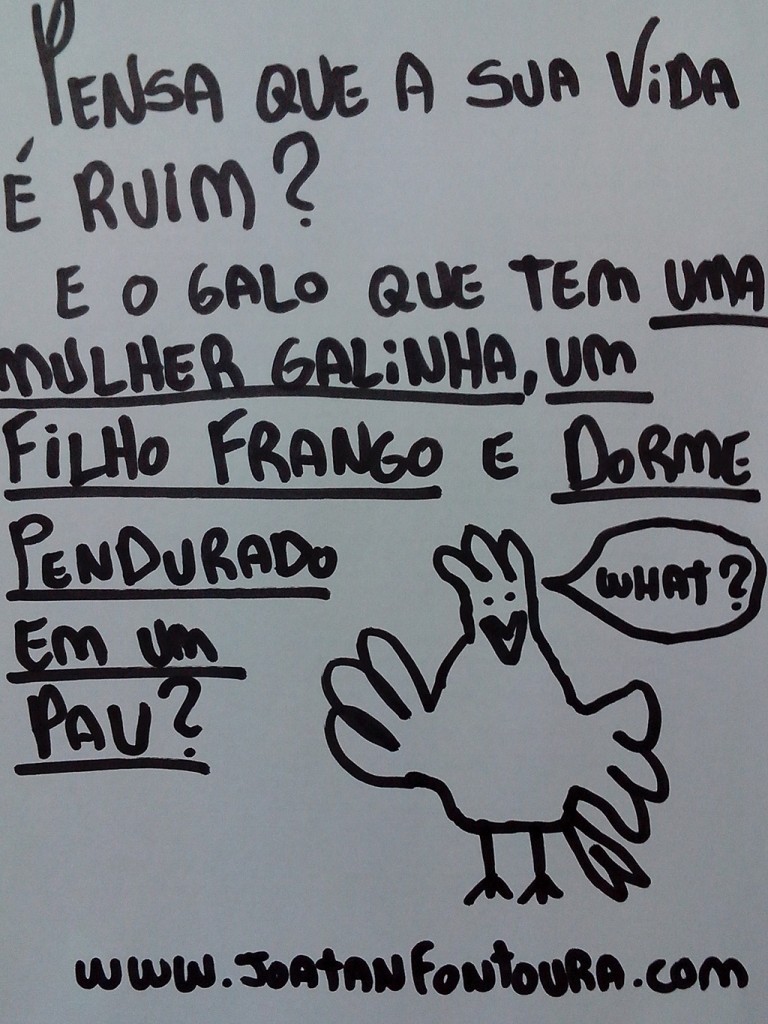 PENSA QUE A SUA ViDA
É RUiM?
E O GALO QUE TEM UMA
MULHER GALiNHA, UM
FiLHO FRANGO E DORME
PENDURADO
EM UM
PAU?
WHAT?
WWW.JOATANFONTOURA.COM